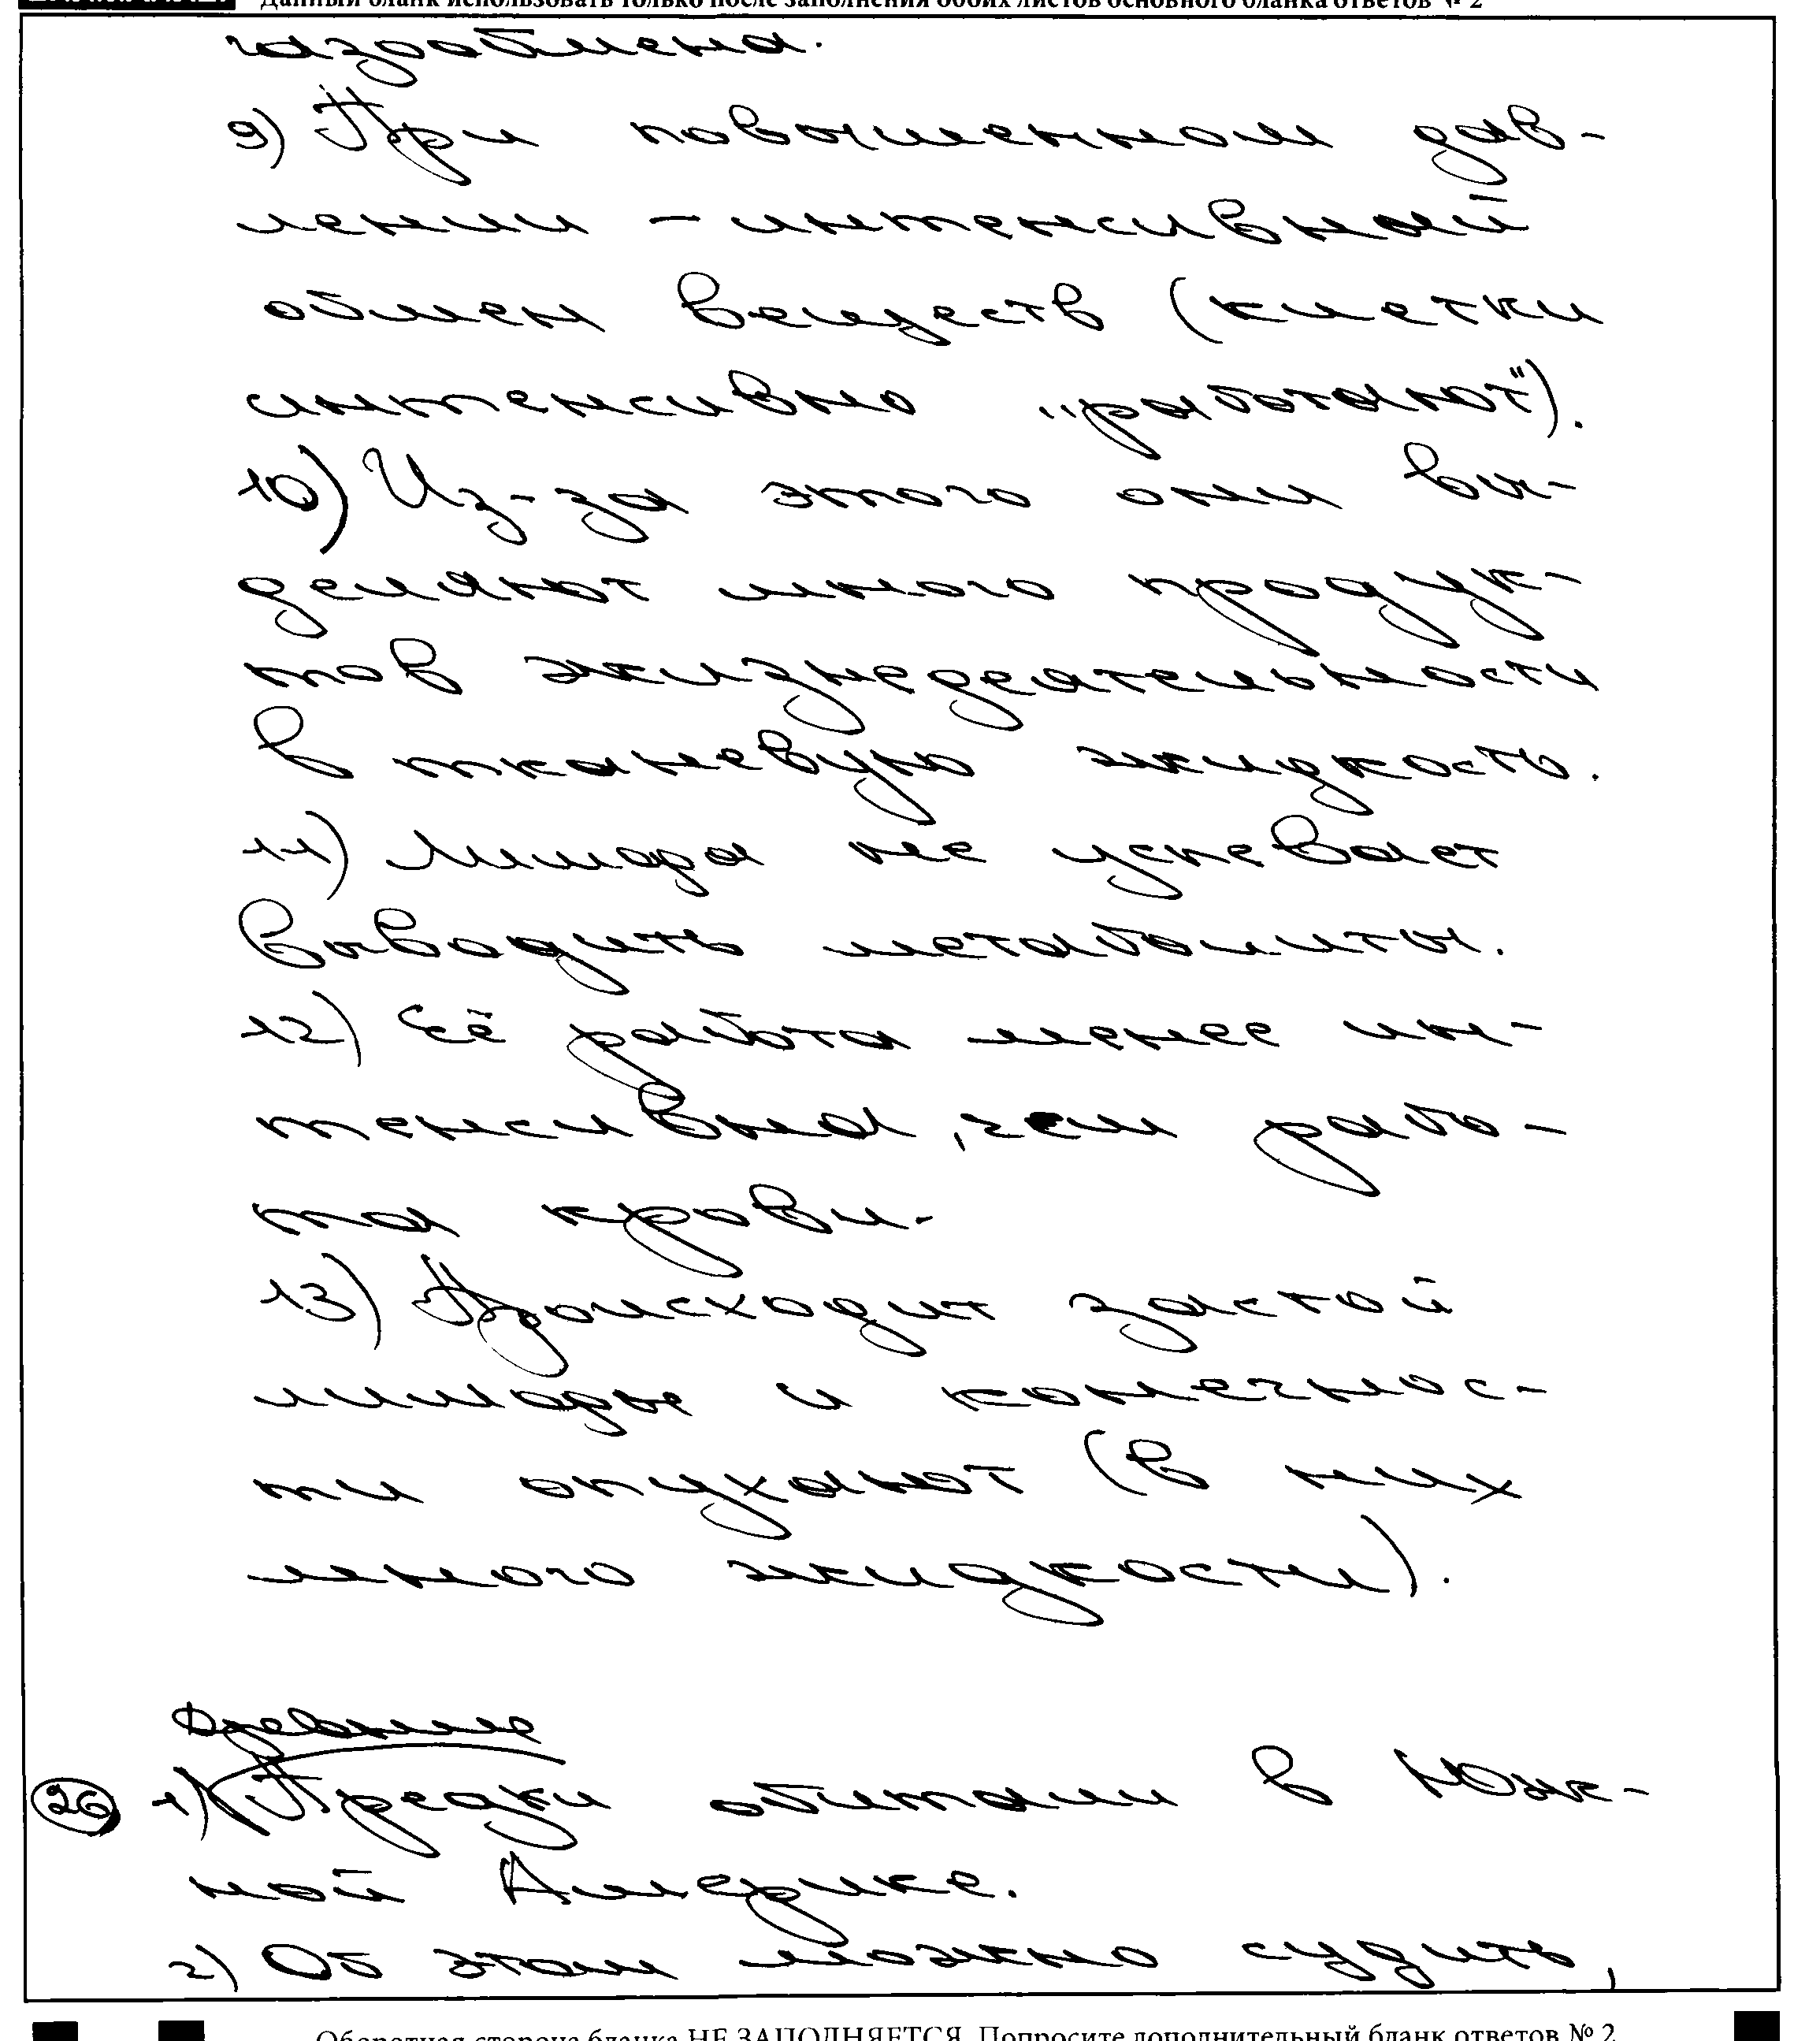 Данный бланк использовать только после заполнения обоих листов основного бланка ответов № 2
газообмена.
9) При повышенном дав-
лении - интенсивной
обмен веществ (клетки
интенсивно "работают").
10) Из-за этого они вы-
деляют много продук-
тов жизнедеятельности
в тканевую жидкость.
11) Лимфа не успевает
выводить метаболиты.
12) Её работа менее ин-
тенсивна, чем рабо-
та крови.
13) Происходит застой
лимфы и конечнос-
ти опухают (в них
много жидкости).
древние
26 1) Предки обитали в Юж-
ной Америке.
2) Об этом можно судить,
Оборотная сторона бланка НЕ ЗАПОЛНЯЕТСЯ. Попросите дополнительный бланк ответов № 2